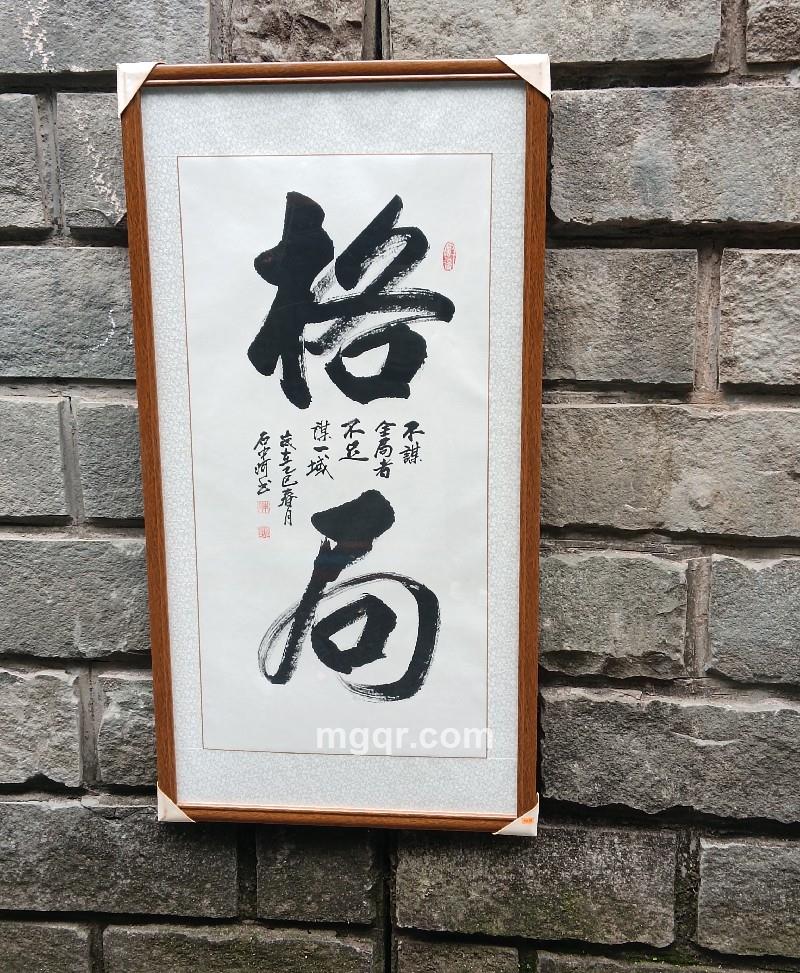 格局
不謀
全局者
不足
謀一域
歲在乙巳春月
石
书
mgqr.com